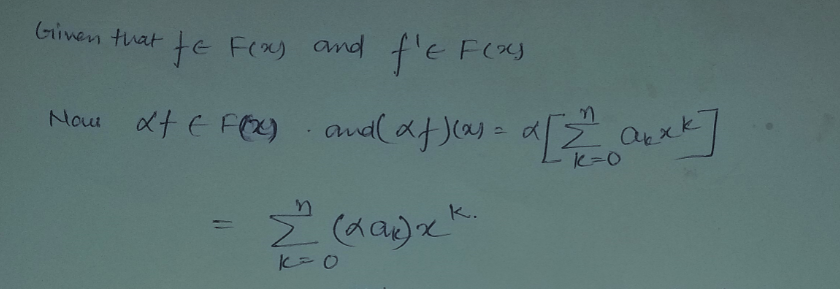 Given that f ∈ F(x) and f' ∈ F(x)
Now αf ∈ F(x) . and (αf)(x) = α[∑_{k=0}^{n} a_k x^k]
= ∑_{k=0}^{n} (αa_k) x^k.